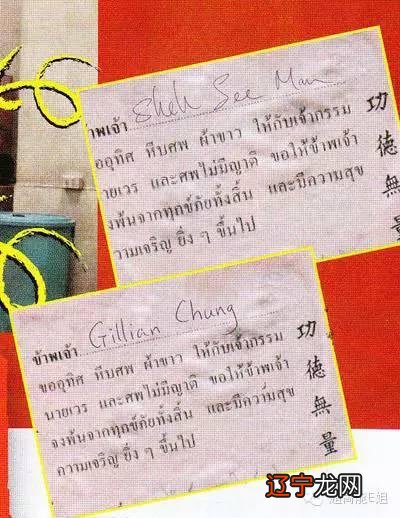 าพเจ้า Sheh See Man
ขออุทิศ หีบศพ ผ้าขาว ให้กับเจ้ากรรม
ายเวร และศพไม่มีญาติ ขอให้ข้าพเจ้า
งพ้นจากทุกข์ภัยทั้งสิ้น และมีความสุข
วามเจริญ ยิ่ง ๆ ขึ้นไป
功德無量
ข้าพเจ้า Gillian Chung
ขออุทิศ หีบศพ ผ้าขาว ให้กับเจ้ากรรม
นายเวร และศพไม่มีญาติ ขอให้ข้าพเจ้า
จงพ้นจากทุกข์ภัยทั้งสิ้น และมีความสุข
ความเจริญ ยิ่ง ๆ ขึ้นไป
功德無量
辽宁龙网